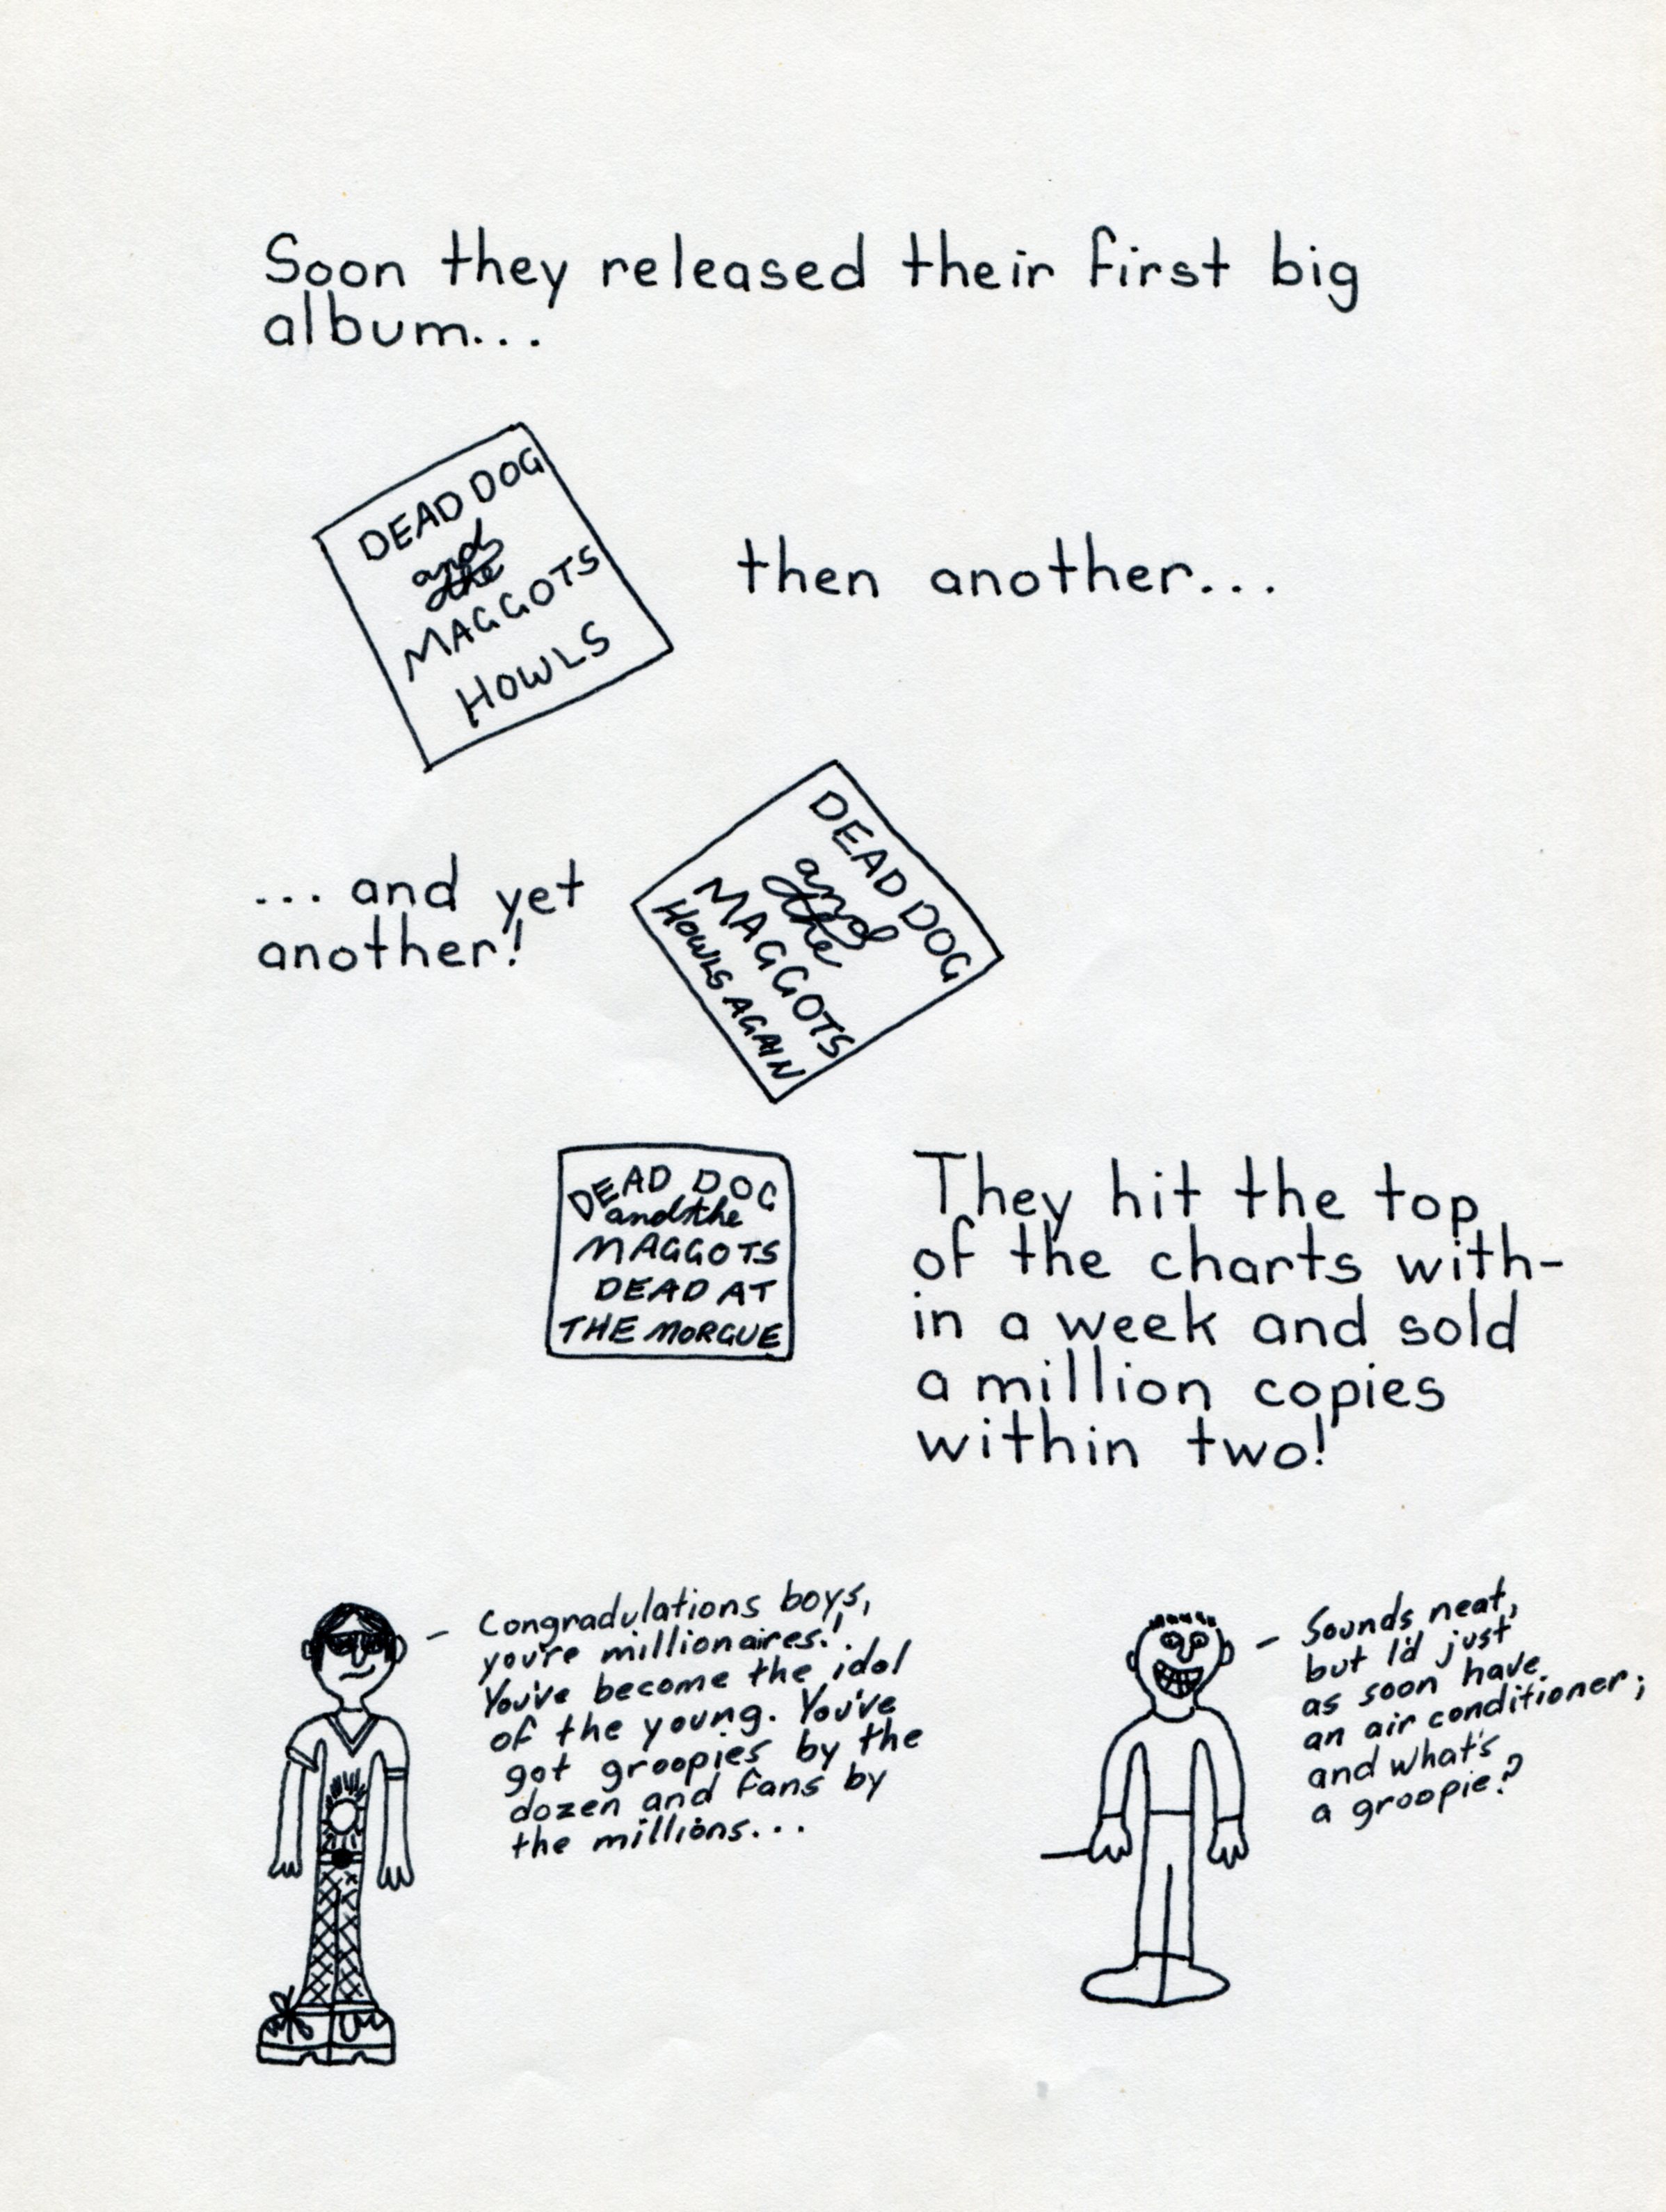 Soon they released their first big
album...
DEAD DOG
and
the
MAGGOTS
HOWLS
then another...
... and yet
another!
DEAD DOG
and
the
MAGGOTS
HOWLS AGAIN
DEAD DOG
and the
MAGGOTS
DEAD AT
THE MORGUE
They hit the top
of the charts with-
in a week and sold
a million copies
within two!
Congradulations boys,
you're millionaires!
You've become the idol
of the young. You've
got groopies by the
dozen and fans by
the millions...
Sounds neat,
but I'd just
as soon have
an air conditioner;
and what's
a groopie?